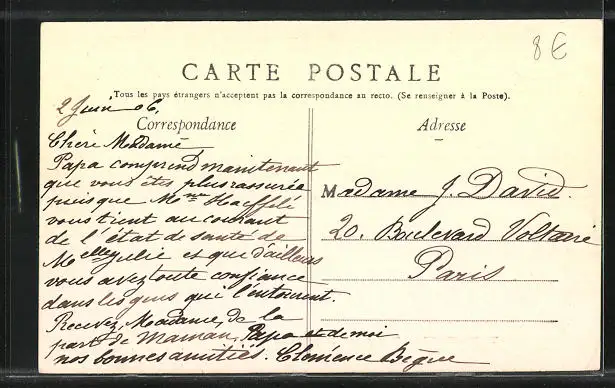 8€
CARTE POSTALE
Tous les pays étrangers n'acceptent pas la correspondance au recto. (Se renseigner à la Poste).
2 Juin 06,
Correspondance
Chère Madame
Papa comprend maintenant
que vous êtes plus rassurée
puisque Mme Haeffelé
vous tient au courant
de l'état de santé de
Melle Julie et que d'ailleurs
vous avez toute confiance
dans les gens qui l'entourent.
Recevez, Madame, de la
part de Maman, Papa et de moi
nos bonnes amitiés. Clémence Bègue
Adresse
Madame J. David.
20. Boulevard Voltaire
Paris